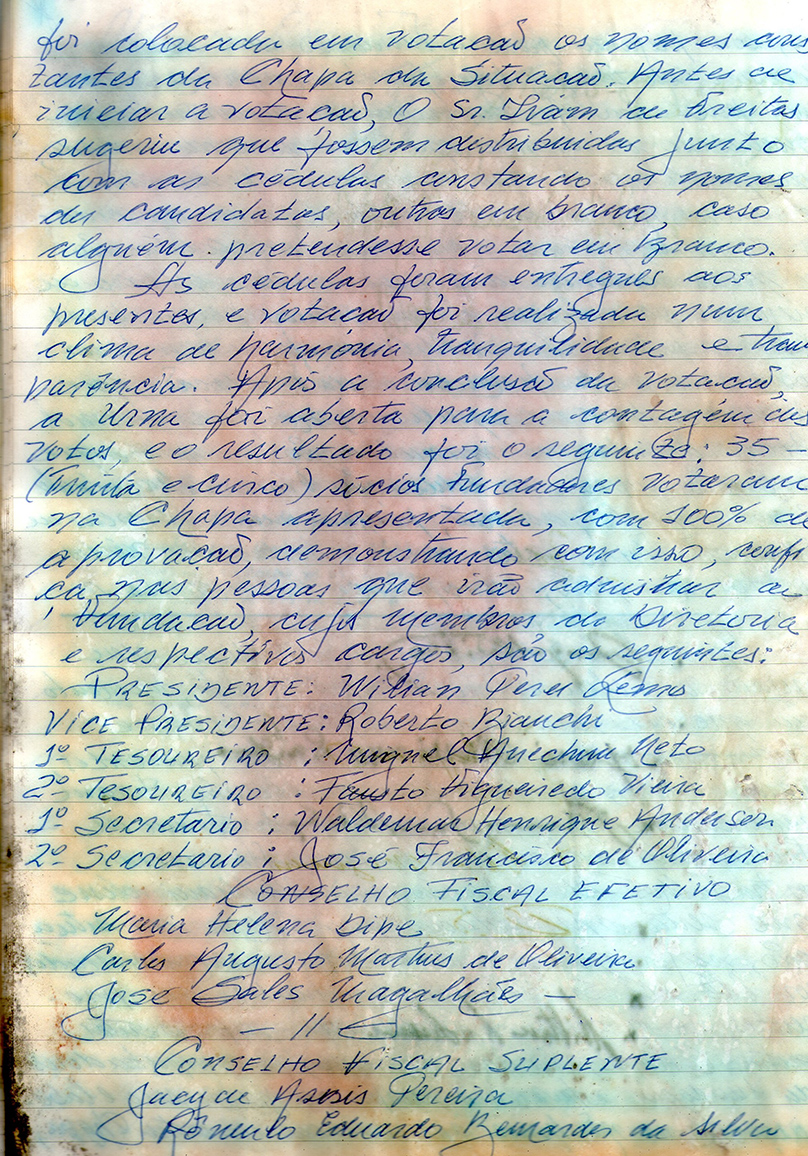 foi colocada em votacaõ os nomes cons
tantes da Chapa da Situacaõ. Antes de
iniciar a votaçaõ, O Sr. Ivám de Freitas
sugeriu que fossem distribuidas junto
com as cédulas constando os nomes
dos candidatos, outras em branco, caso
alguém pretendesse votar em Branco.
As cédulas foram entregues aos
presentes, e votacaõ foi realizada num
clima de harmónia, tranquilidade e trans
parência. Após a conclusaõ da votacaõ,
a Urna foi aberta para a contagém dos
votos, e o resultado foi o seguinte: 35 -
(Trinta e cinco) sócios Fundadores votaram
na Chapa apresentada, com 100% de
aprovacaõ, demonstrando com isso, confi
ça nas pessoas que irão admistrar a
Fundacaõ, cujos membros da Diretoria
e respectivos cargos, são os seguintes:
PRESIDENTE: Wilian Peres Lemos
VICE PRESIDENTE: Roberto Bianchi
1º TESOUREIRO : Miguel Neto
2º TESOUREIRO : Fausto Figueiredo Vieira
1º Secretario : Waldemar Henrique Andersen
2º Secretario : José Francisco de Oliveira
CONSELHO FISCAL EFETIVO
Maria Helena Dipe
Carlos Augusto Martins de Oliveira
José Sales Magalhães —
— 11
CONSELHO FISCAL SUPLENTE
Assis Pereira
Rômulo Eduardo Bernardes da Silva